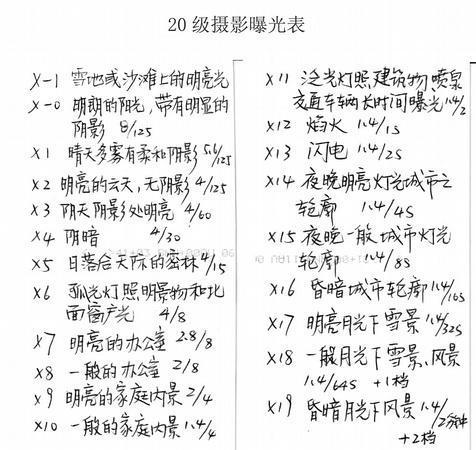 20级摄影曝光表
X-1 雪地或沙滩上的明亮光
X-0 明朗的阳光,带有明显的
阴影 8/125
X1 晴天多雾有柔和阴影 5.6/125
X2 明亮的云天,无阴影 4/125
X3 阴天阴影处明亮 4/60
X4 阴暗 4/30
X5 日落后天际的密林 4/15
X6 弧光灯照明景物和北
面窗户光 4/8
X7 明亮的办公室 2.8/8
X8 一般的办公室 2/8
X9 明亮的家庭内景 2/4
X10 一般的家庭内景 1.4/4
X11 泛光灯照建筑物、喷泉
交通车辆长时间曝光 1.4/2
X12 焰火 1.4/1S
X13 闪电 1.4/2S
X14 夜晚明亮灯光城市之
轮廓 1.4/4S
X15 夜晚一般城市灯光
轮廓 1.4/8S
X16 昏暗城市轮廓 1.4/16S
X17 明亮月光下雪景 1.4/32S
X18 一般月光下雪景、风景
1.4/64S +1档
X19 昏暗月光下风景 1.4/2分钟
+2档